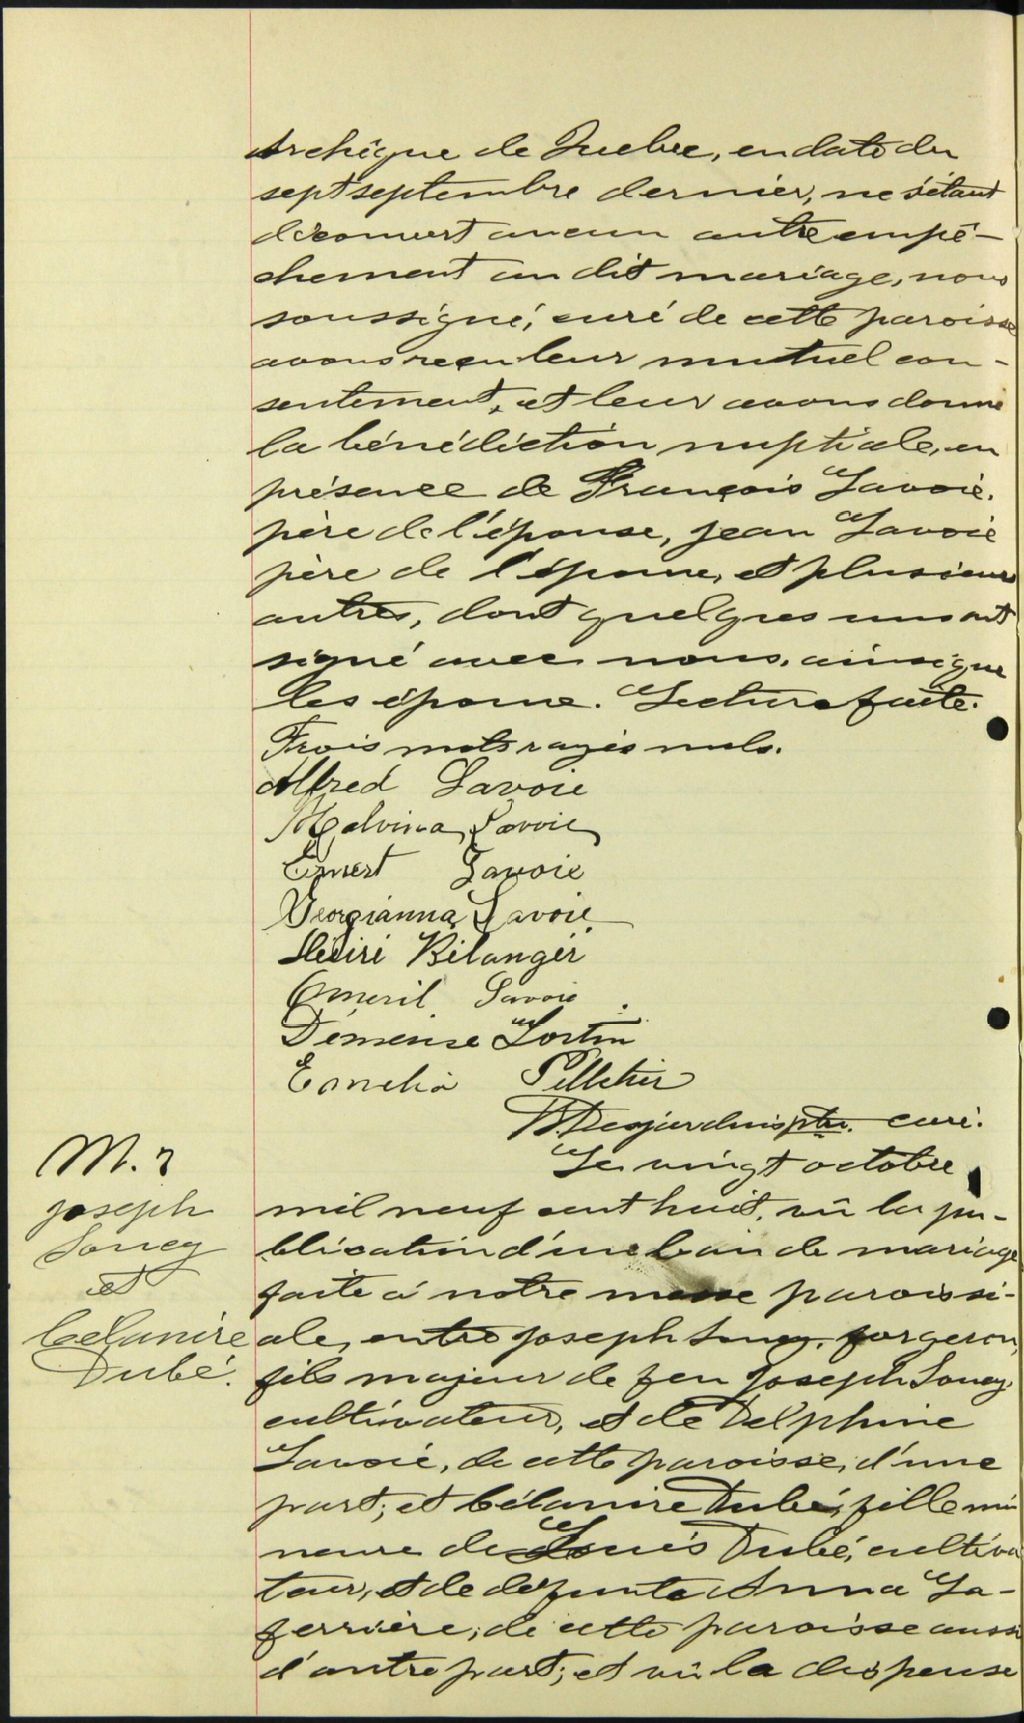 Archique de Quebec, en date du
sept septembre dernier, ne s'étant
découvert aucun autre empê-
chement au dit mariage, nous
soussigné, curé de cette paroisse
avons reçu leur mutuel con-
sentement, et leur avons donné
la bénédiction nuptiale, en
présence de François Savoie,
père de l'épouse, Jean Savoie
père de l'époux, et plusieurs
autres, dont quelques uns ont
signé avec nous, ainsi que
les époux. Lecture faite.
Trois mots rayés nuls.
Alfred Savoie
Malvina Savoie
Ernest Savoie
Georgianna Savoie
Désiré Bélanger
Omeril Savoie
Démerise Fortin
Emelia Pelletier
Desjardins ptre. curé.
M. 7
Joseph
Soucy
et
Célanire
Dubé.
Le vingt octobre
mil neuf cent huit, vû la pu-
blication d'un ban de mariage
faite à notre messe paroissi-
ale, entre Joseph Soucy, forgeron,
fils majeur de feu Joseph Soucy
cultivateur, et de Delphine
Savoie, de cette paroisse, d'une
part; et Célanire Dubé, fille mi
neure de Louis Dubé, cultiva
teur, et de défunte Anna La-
ferrière, de cette paroisse aussi
d'autre part; et vû la dispense